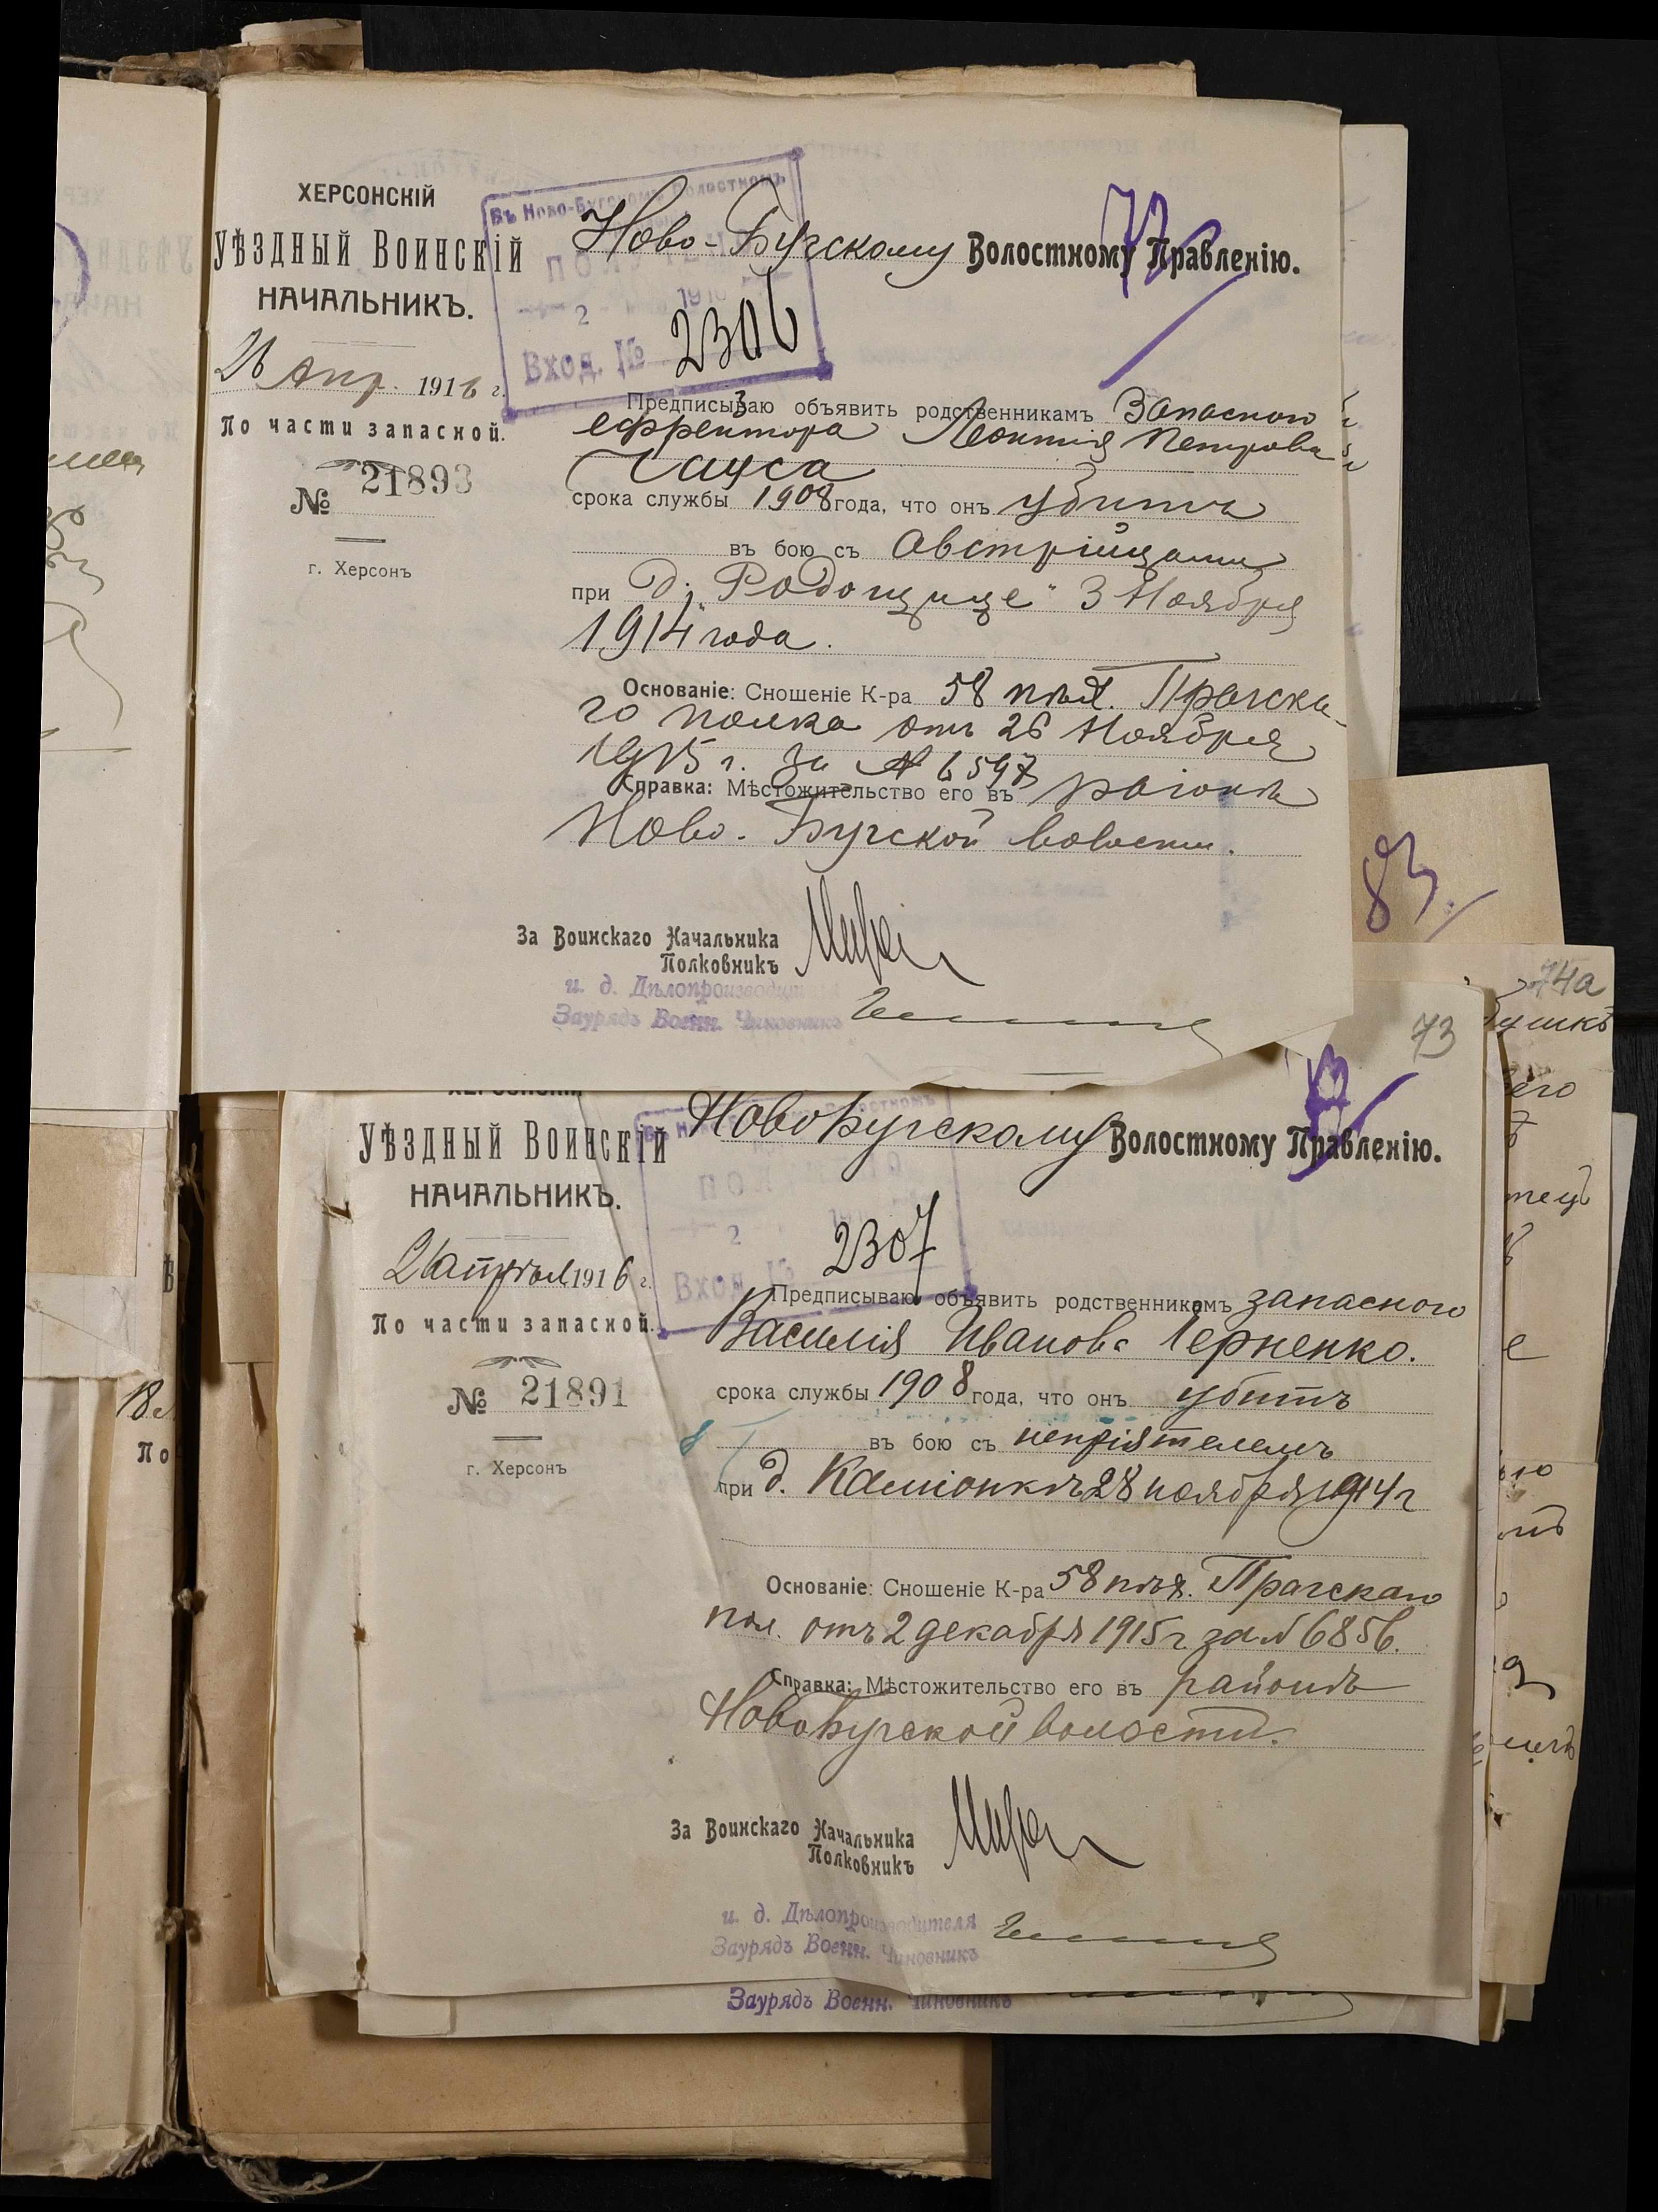 ХЕРСОНСКІЙ
УѢЗДНЫЙ ВОИНСКІЙ
НАЧАЛЬНИКЪ.
26 Апр. 1916 г.
По части запасной.
№ 21893
г. Херсонъ
Въ Ново-Бугскомъ Волостномъ
2 1916
Вход. № 2306
72
Ново-Бугскому Волостному Правленію.
Предписываю объявить родственникамъ Запасного
ефрейтора Леонтія Петрова
Чауса
срока службы 1908 года, что онъ убитъ
въ бою съ Австрійцами
при д. „Родощице" 3 Ноября
1914 года.
Основаніе: Сношеніе К-ра 58 пѣх. Прагска-
го полка отъ 26 Ноября
1915 г. за № 6597
Справка: Мѣстожительство его въ раіонѣ
Ново-Бугской волости.
За Воинскаго Начальника
Полковникъ
и. д. Дѣлопроизводителя
Заурядъ Военн. Чиновникъ
83.
74а
73
ХЕРСОНСКІЙ
УѢЗДНЫЙ ВОИНСКІЙ
НАЧАЛЬНИКЪ.
26 апрѣля 1916 г.
По части запасной.
№ 21891
г. Херсонъ
2
Вход. № 2307
НовоБугскому Волостному Правленію.
Предписываю объявить родственникамъ запасного
Василія Иванова Черненко.
срока службы 1908 года, что онъ убитъ
въ бою съ непріятелемъ
при д. Каміонкѣ 28 ноября 1914 г
Основаніе: Сношеніе К-ра 58 пѣх. Прагскаго
пол. отъ 2 декабря 1915 г. за № 6856.
Справка: Мѣстожительство его въ районѣ
НовоБугской волости.
За Воинскаго Начальника
Полковникъ
и. д. Дѣлопроизводителя
Заурядъ Военн. Чиновникъ
Заурядъ Военн. Чиновникъ